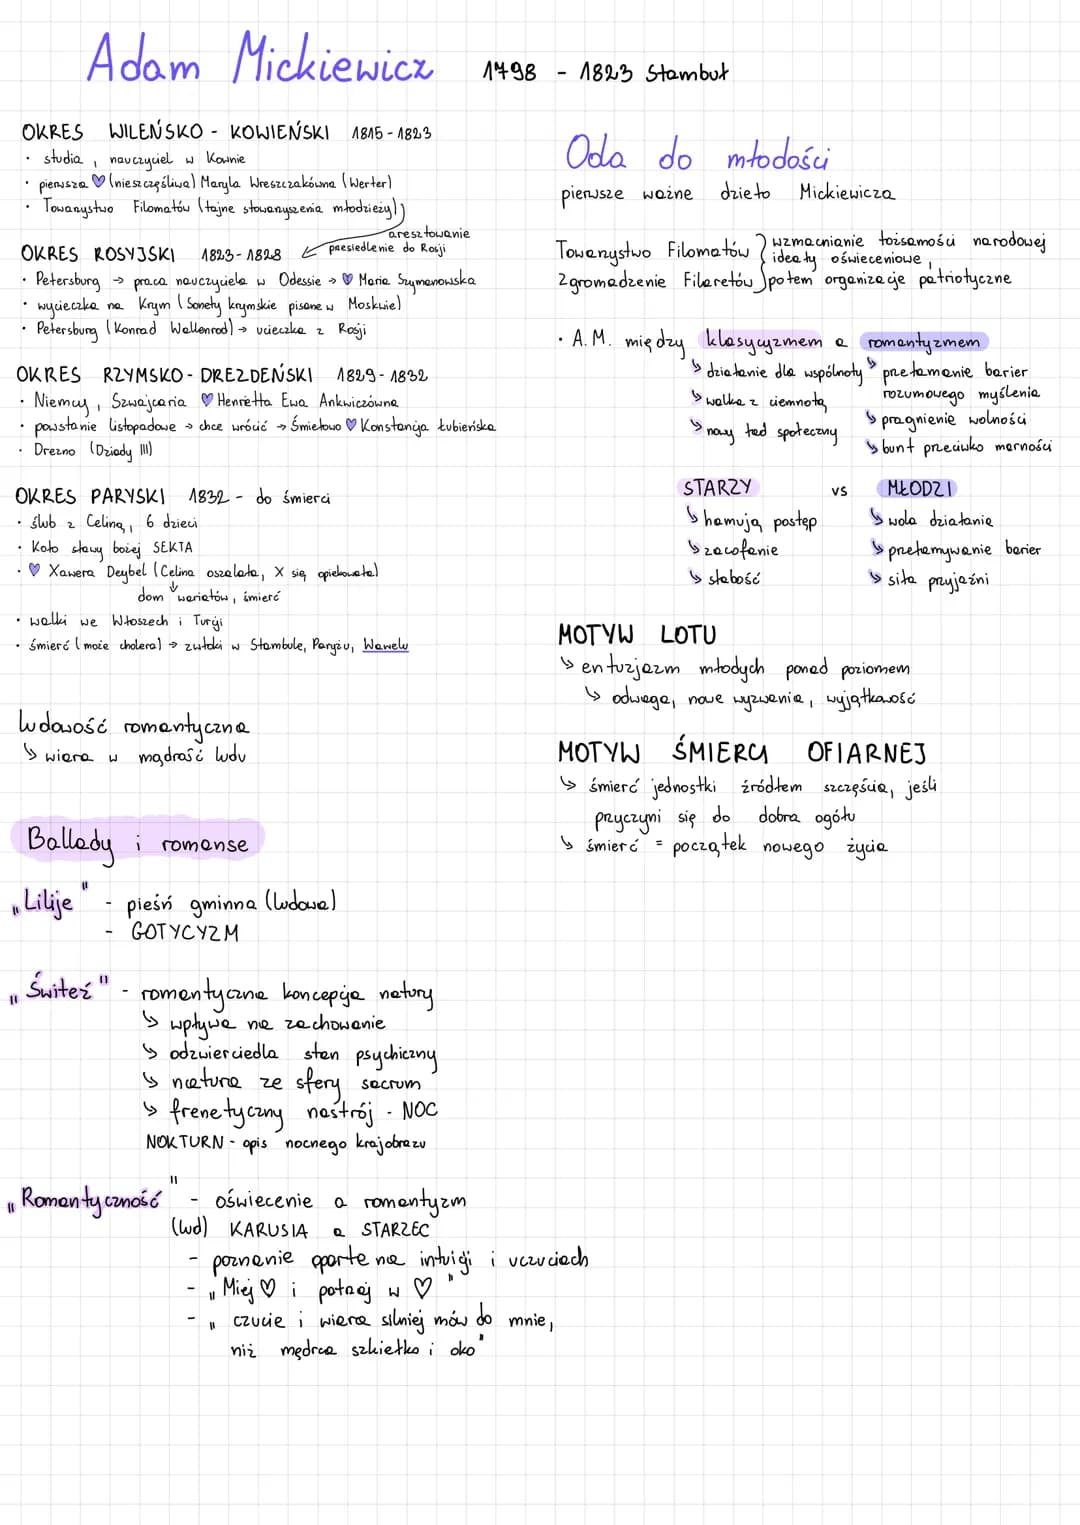 Adam Mickiewicz 1798 - 1823 Stambuł
OKRES WILEŃSKO - KOWIEŃSKI 1815 - 1823
• studia, nauczyciel w Kownie
• pierwsza ♡ (nieszczęśliwa) Maryla Wreszczakówna (Werter)
• Towarzystwo Filomatów (tajne stowarzyszenia młodzieży)
aresztowanie
przesiedlenie do Rosji
OKRES ROSYJSKI 1823 - 1828
• Petersburg → praca nauczyciela w Odessie → ♡ Maria Szymanowska
• wycieczka na Krym (Sonety krymskie pisane w Moskwie)
• Petersburg (Konrad Wallenrod) → ucieczka z Rosji
OKRES RZYMSKO - DREZDEŃSKI 1829 - 1832
• Niemcy, Szwajcaria ♡ Henrietta Ewa Ankwiczówna
• powstanie listopadowe → chce wrócić → Śmiełowo ♡ Konstancja Łubieńska
• Drezno (Dziady III)
OKRES PARYSKI 1832 - do śmierci
• ślub z Celiną, 6 dzieci
• Koło sławy bożej SEKTA
• ♡ Xawera Deybel (Celina oszalała, X się opiekowała)
dom wariatów, śmierć
• walki we Włoszech i Turcji
• śmierć (może cholera) → zwłoki w Stambule, Paryżu, Wawelu
ludowość romantyczna
↳ wiara w mądrość ludu
Ballady i romanse
„Lilije" - pieśń gminna (ludowa)
- GOTYCYZM
„Świteź" - romantyczna koncepcja natury
↳ wpływa na zachowanie
↳ odzwierciedla stan psychiczny
↳ natura ze sfery sacrum
↳ frenetyczny nastrój - NOC
NOKTURN - opis nocnego krajobrazu
„Romantyczność" - oświecenie a romantyzm
(lud) KARUSIA a STARZEC
- poznanie oparte na intuicji i uczuciach
- „Miej ♡ i patrzaj w ♡"
- „czucie i wiara silniej mów do mnie,
niż mędrca szkiełko i oko"
Oda do młodości
pierwsze ważne dzieło Mickiewicza
Towarzystwo Filomatów } wzmacnianie tożsamości narodowej
ideały oświeceniowe,
Zgromadzenie Filaretów potem organizacje patriotyczne
• A.M. między klasycyzmem a romantyzmem
↳ działanie dla wspólnoty
↳ walka z ciemnotą
↳ nowy ład społeczny
↳ przełamanie barier
rozumowego myślenia
↳ pragnienie wolności
↳ bunt przeciwko marności
STARZY vs MŁODZI
↳ hamują postęp ↳ wola działania
↳ zacofanie ↳ przełamywanie barier
↳ słabość ↳ siła przyjaźni
MOTYW LOTU
↳ entuzjazm młodych ponad poziomem
↳ odwaga, nowe wyzwania, wyjątkowość
MOTYW ŚMIERCI OFIARNEJ
↳ śmierć jednostki źródłem szczęścia, jeśli
przyczyni się do dobra ogółu
↳ śmierć = początek nowego życia